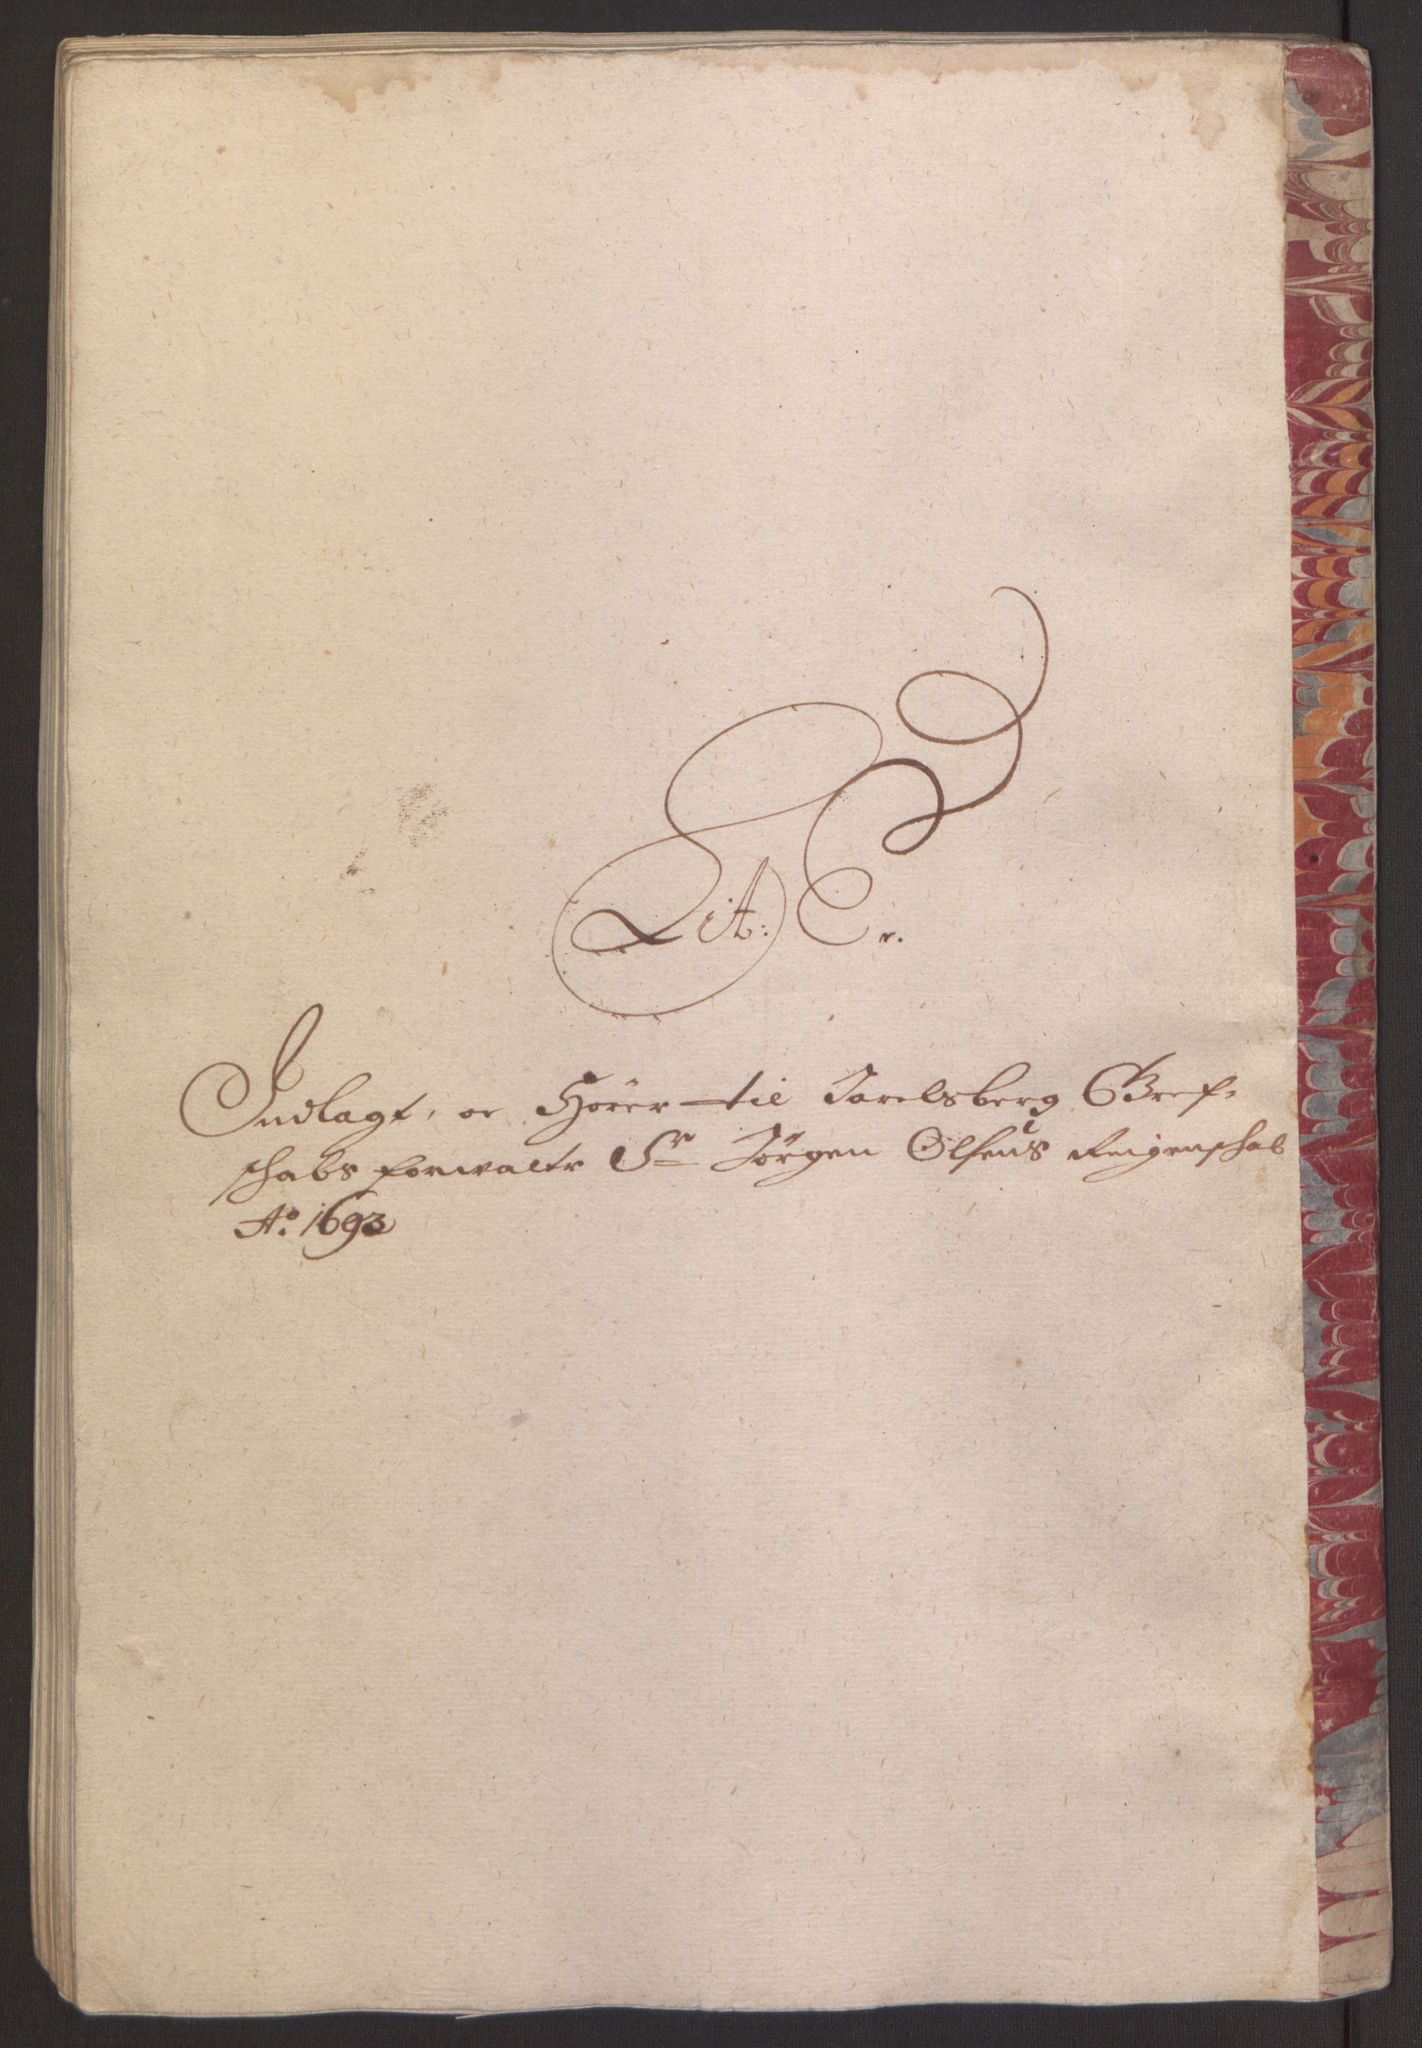 Lit: C.
Indlagt, oc Hörer til Jarelsberg Gref-
schabs forwaltr Sr Jörgen Olsens Reigenschab
Ao. 1693